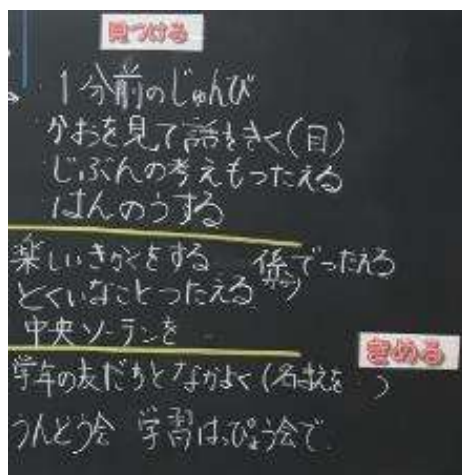 見つける
1分前のじゅんび
かおを見て話をきく(目)
じぶんの考えもつたえる
はんのうする
楽しいきかくをする 係でつたえる
とくいなことつたえる
中央ソーランを
きめる
学年の友だちとなかよく(名まえを )
うんどう会 学習はっぴょう会で